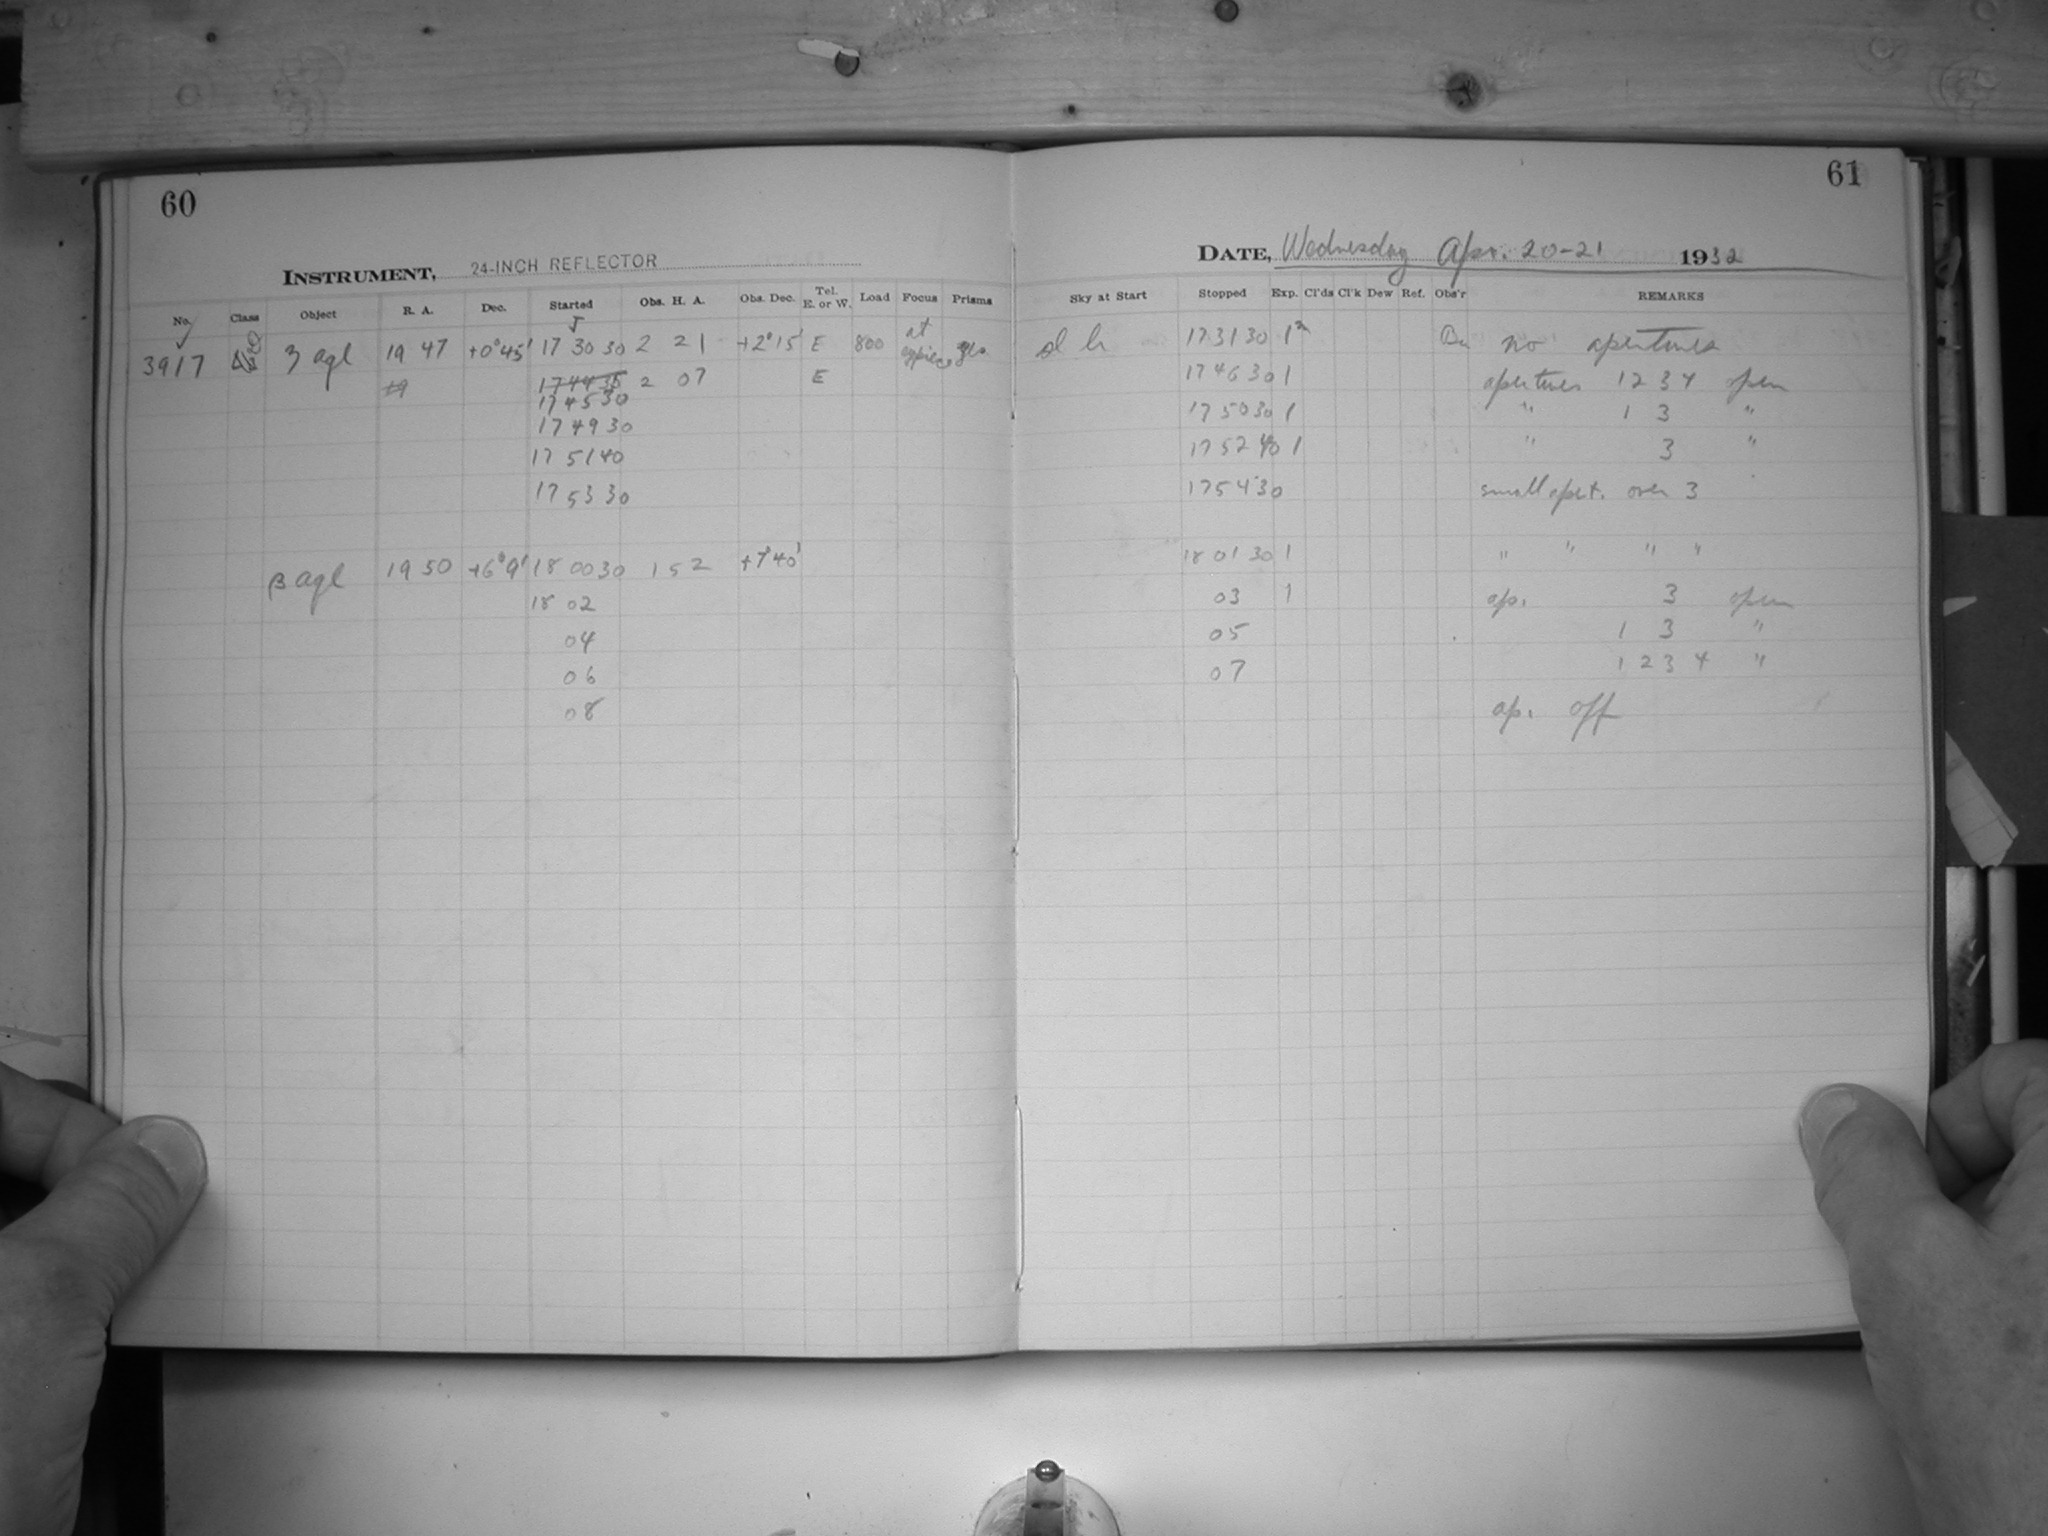 60
INSTRUMENT, 24-INCH REFLECTOR
No. Class Object R. A. Dec. Started Obs. H. A. Obs. Dec. Tel. E. or W. Load Focus Prisms
3917 3 agl 19 47 +0°45' 17 30 30 2 21 +2°15' E 800 at
19 17 44 35 2 07 E
17 45 30
17 49 30
17 51 40
17 53 30
β agl 19 50 +6°9' 18 00 30 1 52 +7°40'
18 02
04
06
08
61
DATE, Wednesday Apr. 20-21 1932
Sky at Start Stopped Exp. Cl'ds Cl'k Dew Ref. Obs'r REMARKS
17 31 30 1m no apertures
17 46 30 1 apertures 1 2 3 4 open
17 50 30 1 " 1 3 "
17 52 40 1 " 3 "
17 54 30 small apert. over 3
18 01 30 1 " " " "
03 1 ap. 3 open
05 1 3 "
07 1 2 3 4 "
ap. off